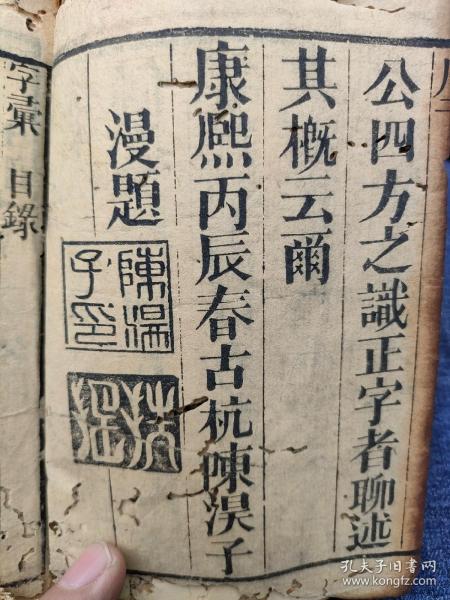 公四方之識正字者聊述
其概云爾
康熙丙辰春古杭陳淏子
漫題
陳淏
子印
扶搖
字彙 目錄
孔夫子旧书网
www.kongfz.com